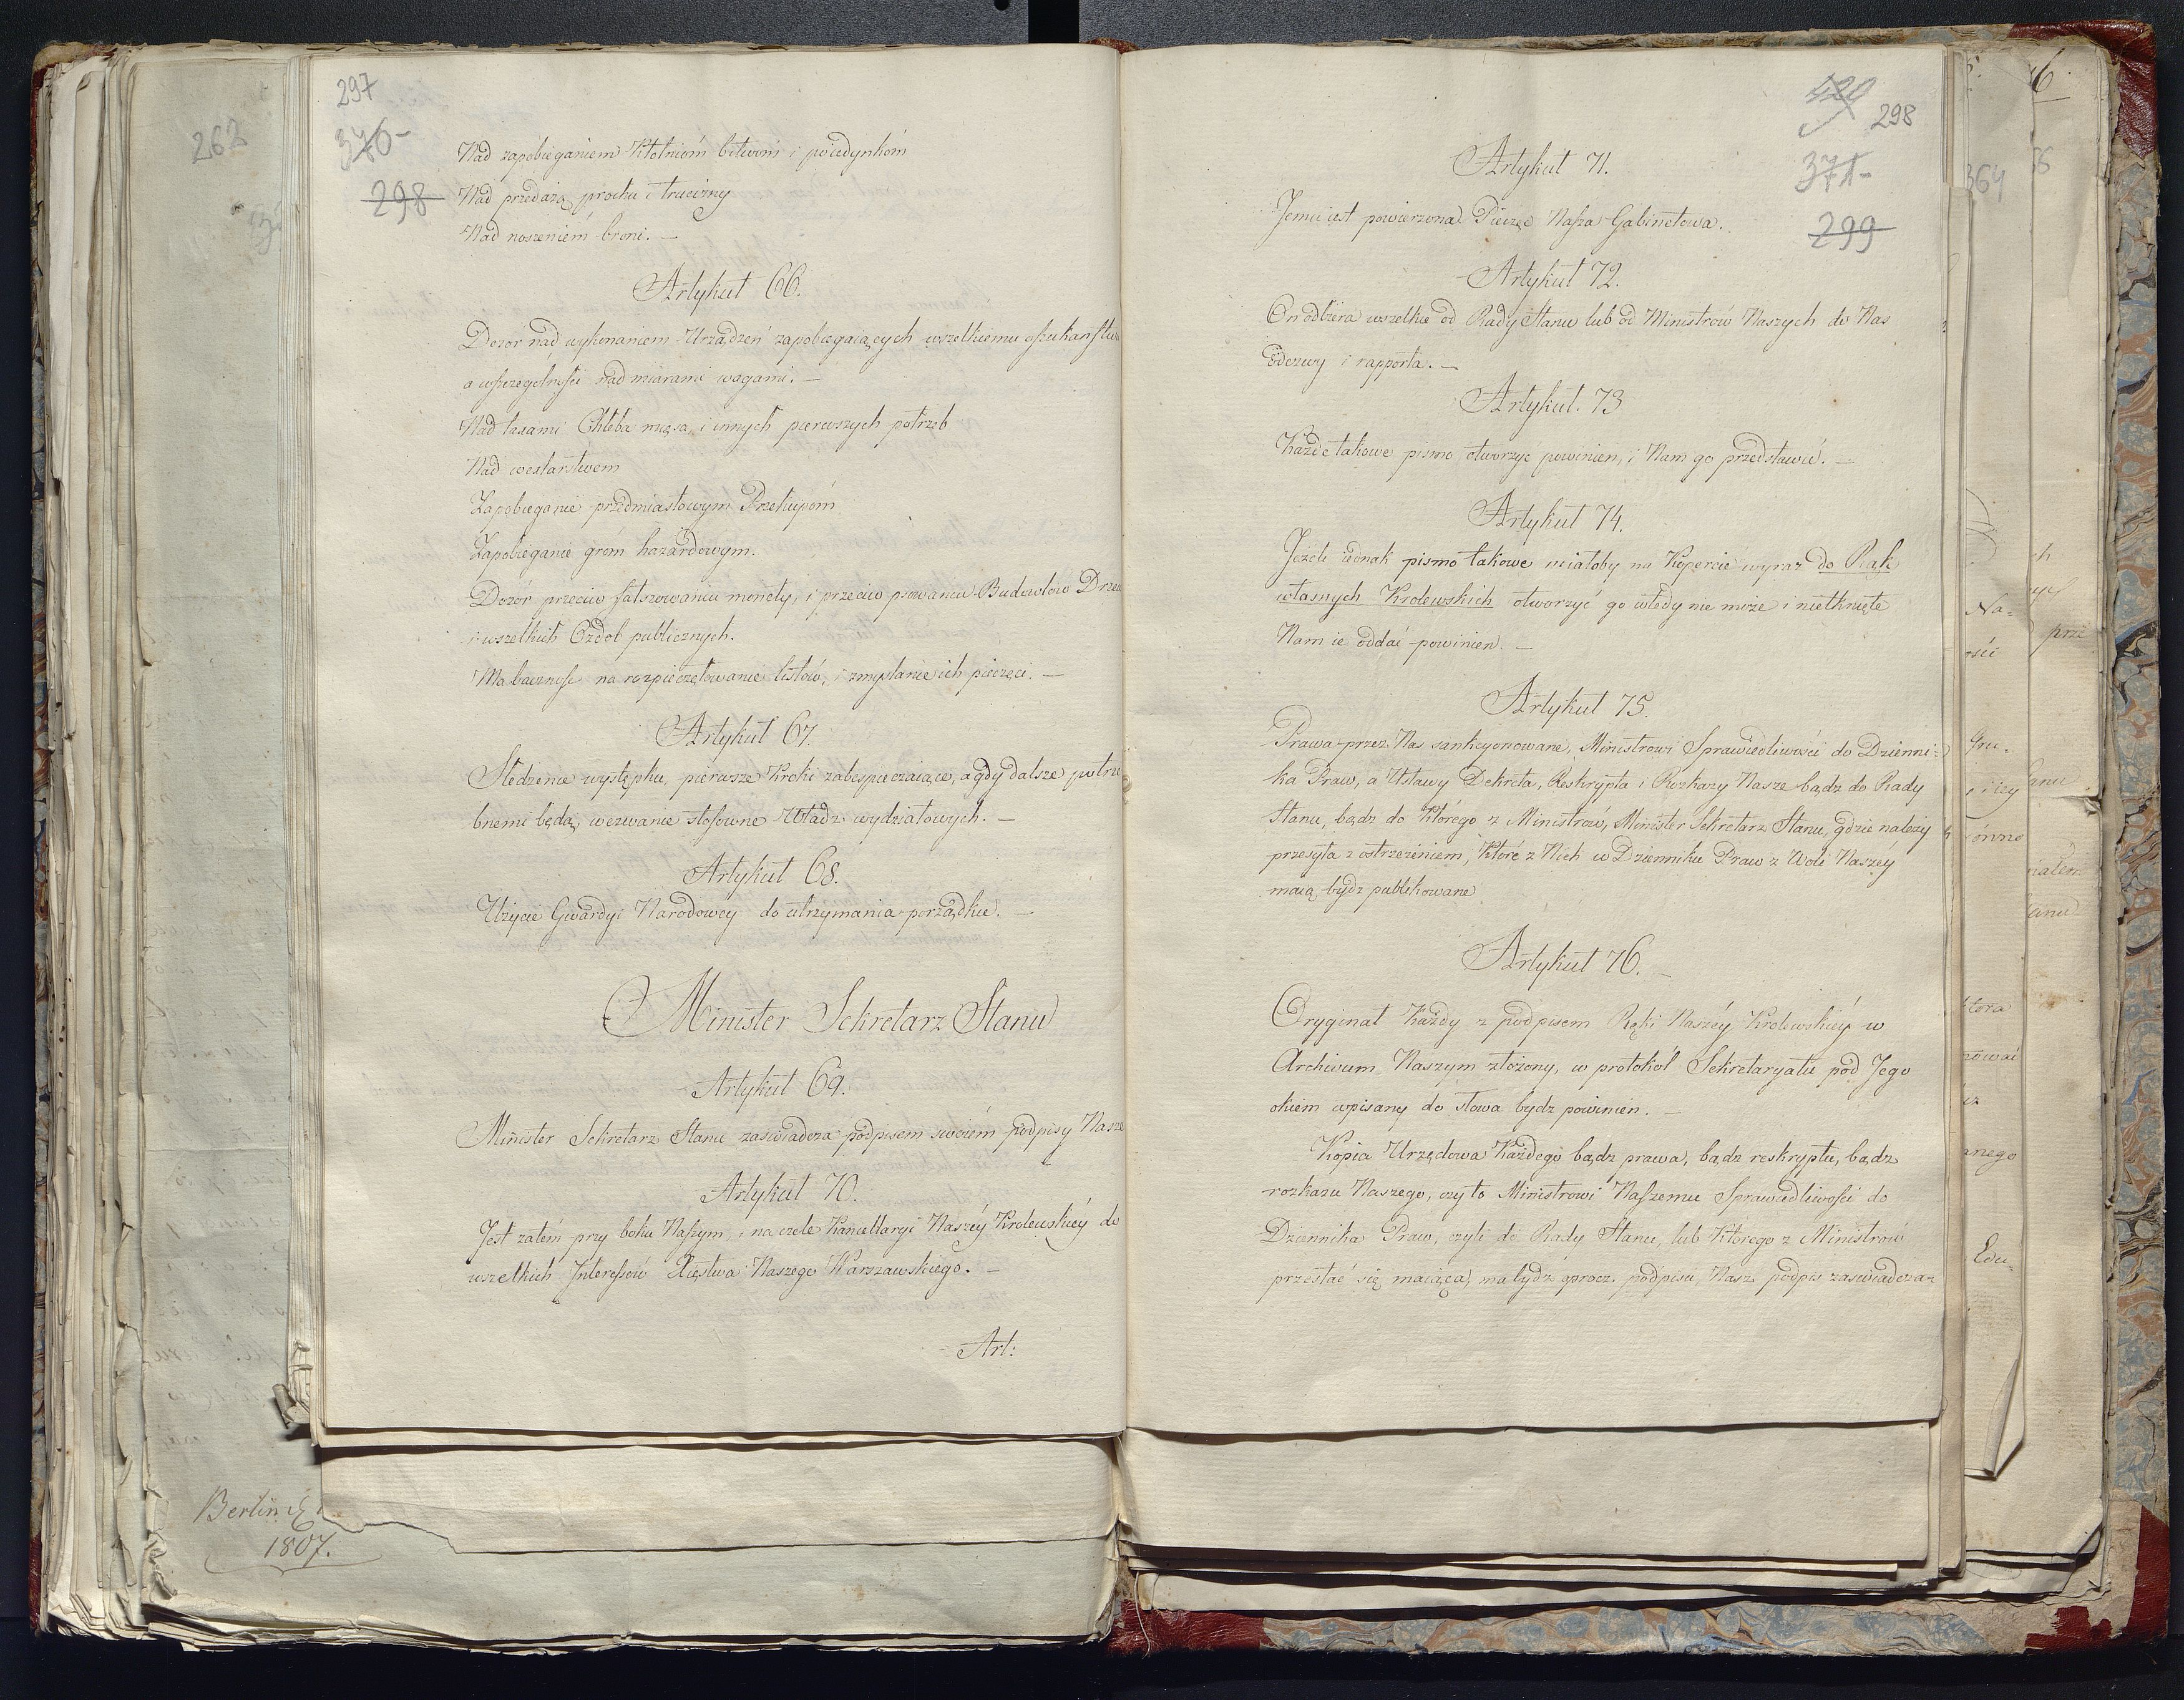 297
370
298
Nad zapobieganiem Kłotniom bitwom i poiedynkom
Nad przedażą prochu i trucizny
Nad noszeniem broni. —
Artykuł 66.
Dozor nad wykonaniem Urządzeń zapobiegaiących wszelkiemu oszukanstwu
a wszczegolności nad miarami wagami. —
Nad taxami Chleba mięsa, i innych pierwszych potrzeb
Nad
Zapobieganie przedmiastowym Przekupom
Zapobieganie grom hazardowym.
Dozór przeciw fałszowaniu monety, i przeciw psowaniu Budowlow Drzew
i wszelkich Ozdob publicznych.
Ma baczność na rozpieczętowanie listów, i zmyślanie ich pieczęci. —
Artykuł 67.
Sledzenie występku, pierwsze Kroki zabezpieczaiące, a gdy dalsze potrze
bnemi będą, wezwanie stosowne Władz wydziałowych. —
Artykuł 68.
Użycie Gwardyi Narodowey do utrzymania porządku. —
Minister Sekretarz Stanu
Artykuł 69.
Minister Sekretarz Stanu zaswiadcza podpisem swoiém podpisy Nasze
Artykuł 70.
Jest zatém przy boku Naszym, i na czele Kancellaryi Naszéy Krolewskiéy do
wszelkich Interessów Xięstwa Naszego Warszawskiego. —
Art:
420
298
371
299
Artykuł 71.
Jemu iest powierzona Pieczęć Nasza Gabinetowa.
Artykuł 72.
On odbiera wszelkie od Rady Stanu lub od Ministrów Naszych do Nas
odezwy i rapporta. —
Artykuł. 73
Każde takowe pismo otworzyć powinien, i Nam go przedstawić. —
Artykuł 74.
Jeżeli iednak pismo takowe miałoby na Kopercie wyraz do Rąk
własnych Krolewskich otworzyć go wtedy nie może i nietknięte
Nam ie oddać powinien. —
Artykuł 75.
Prawa przez Nas sankcyonowane, Ministrowi Sprawiedliwości do Dzienni-
ka Praw, a Ustawy Dekreta, Reskrypta i Rozkazy Nasze bądz do Rady
Stanu, bądz do Którego z Ministrów, Minister Sekretarz Stanu, gdzie należy
przesyła z ostrzeżeniem, Które z Nich w Dzienniku Praw z Woli Naszéy
maią bydz publikowane
Artykuł 76. —
Oryginał Każdy z podpisem Ręki Naszéy Krolewskiéy w
Archivum Naszym złożony, w protokół Sekretaryatu pod Jego
okiem wpisany do słowa bydz powinien. —
Kopia Urzędowa Każdego bądz prawa, bądz reskryptu, bądz
rozkazu Naszego, czy to Ministrowi Naszemu Sprawiedliwości do
Dziennika Praw, czyli do Rady Stanu, lub Którego z Ministrów
przesłać się maiąca, ma bydź oprocz podpisu, Nasz podpis zaswiadcza-
262
Berlin
1807.
364
Na-
prze
Edu-